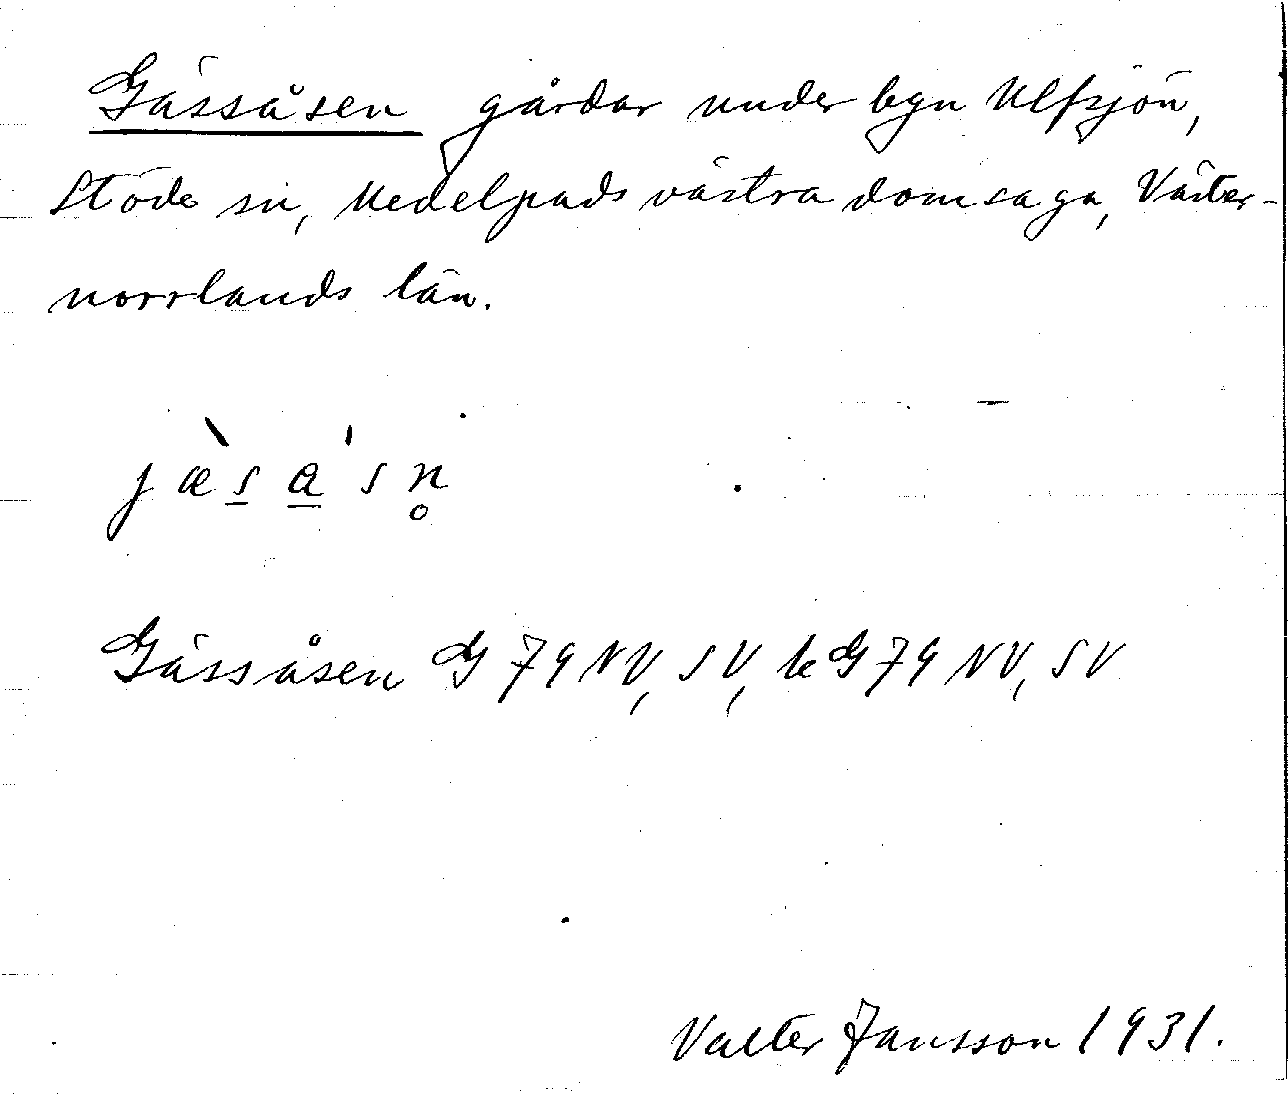 Gässåsen gårdar under byn Ulfsjön,
Stöde sn, Medelpads västra domsaga, Väster-
norrlands län.
jæ̀s̲a̲ˈsn̥
Gässåsen G 79 NV, SV, k G 79 NV, SV
Valter Jansson 1931.